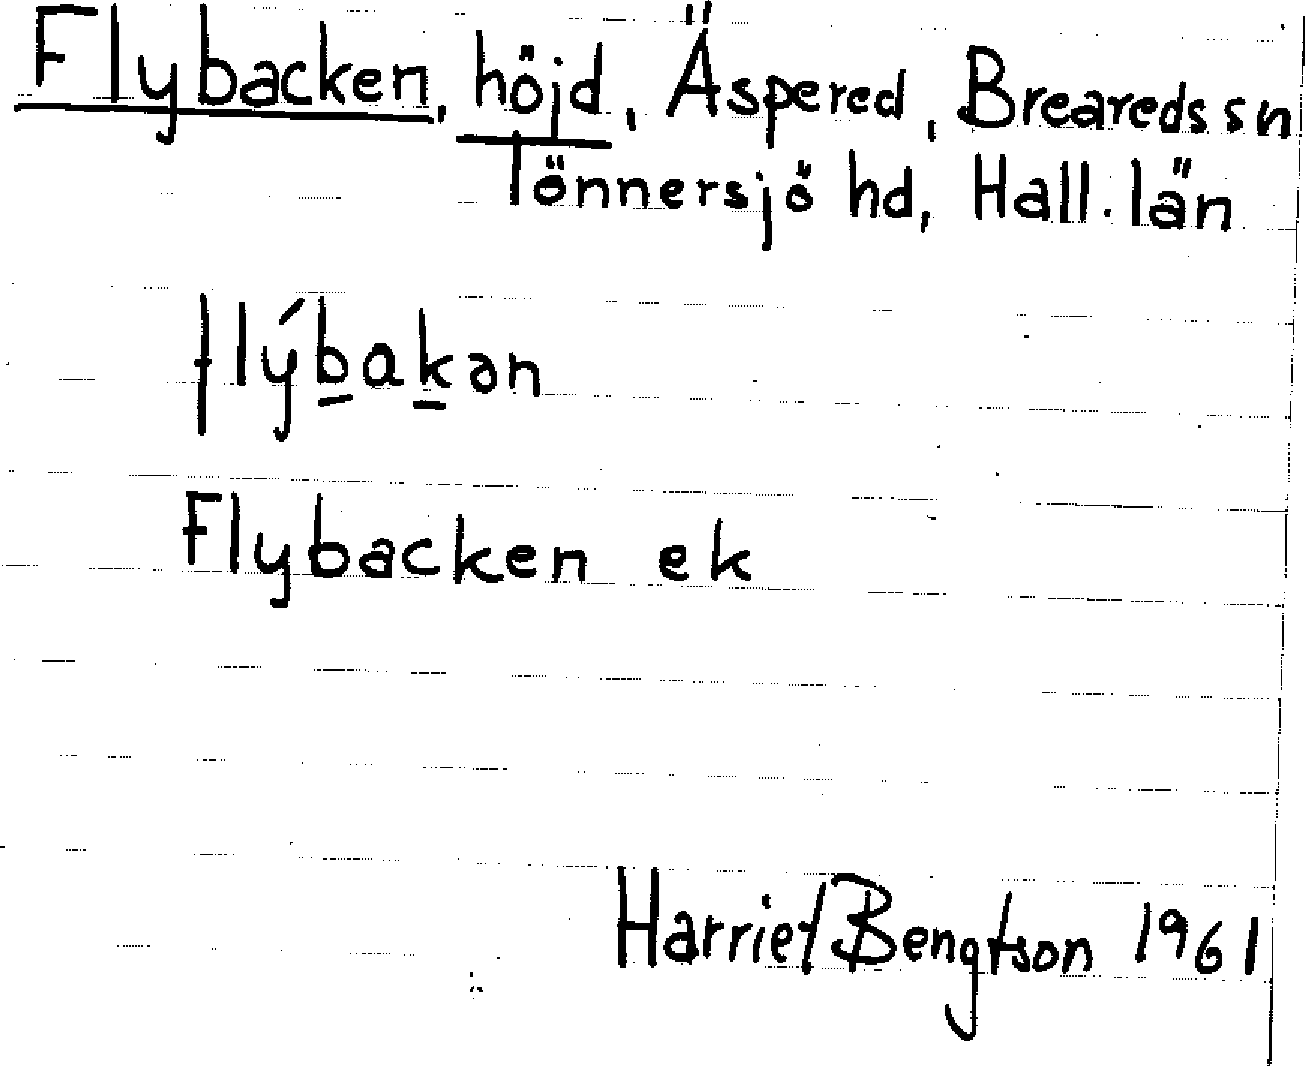 Flybacken, höjd, Äspered, Breareds sn
Tönnersjö hd, Hall. län
flýbakən
Flybacken ek
Harriet Bengtson 1961